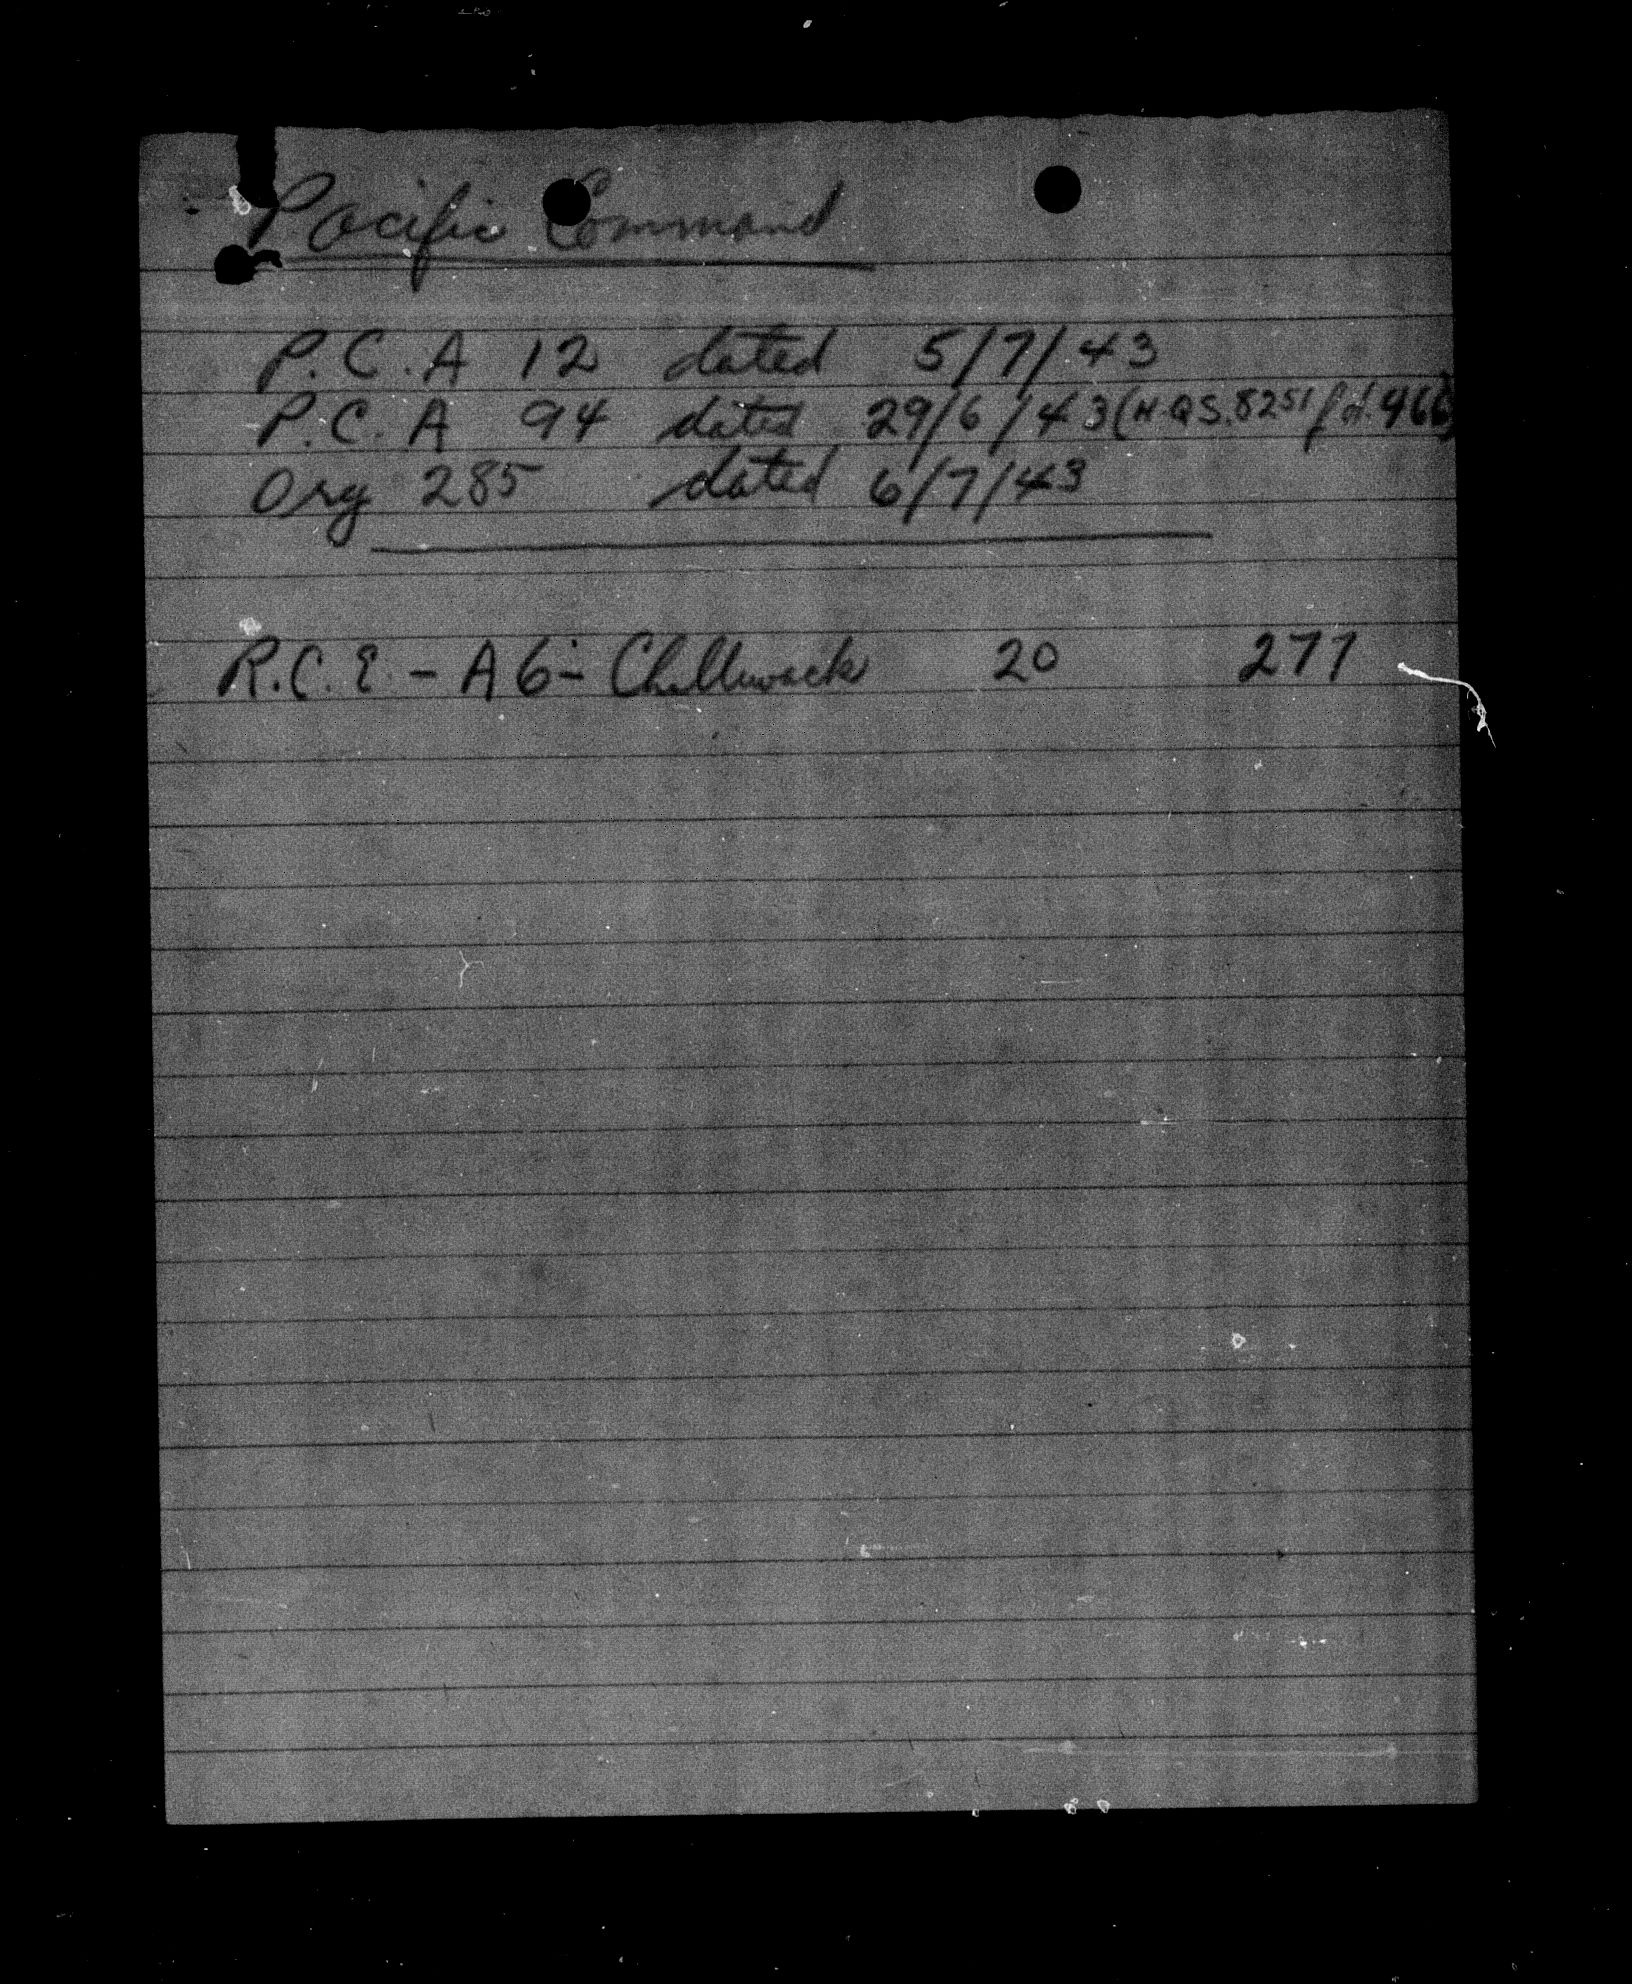 Pacific Command
P.C.A 12 dated 5/7/43
P.C.A 94 dated 29/6/43 (H.Q.S. 8251 fd. 966)
Org 285 dated 6/7/43
R.C.E. - A6 - Chilliwack 20 277